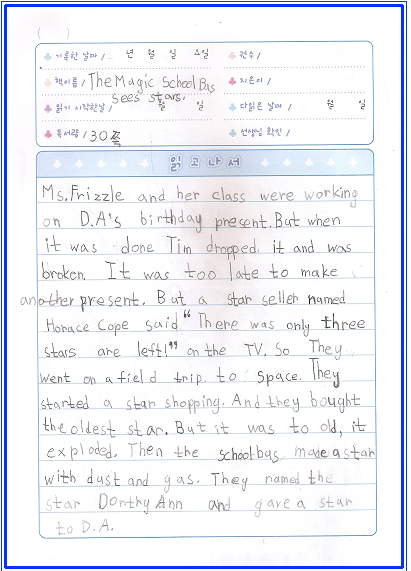 ( )
기록한 날짜 / 년 월 일 요일
권수 /
책이름 / The Magic School Bus
sees stars.
지은이 /
읽기 시작한날 / 월 일
다읽은 날짜 / 월 일
독서량 / 30쪽
선생님 확인 /
읽고나서
Ms. Frizzle and her class were working
on D.A's birthday present. But when
it was done Tim dropped it and was
broken. It was too late to make
another present. But a star seller named
Horace Cope said "There was only three
stars are left!" on the TV. So They
went on a field trip to space. They
started a star shopping. And they bought
the oldest star. But it was to old, it
exploded. Then the school bus made a star
with dust and gas. They named the
star Dorthy Ann and gave a star
to D.A.